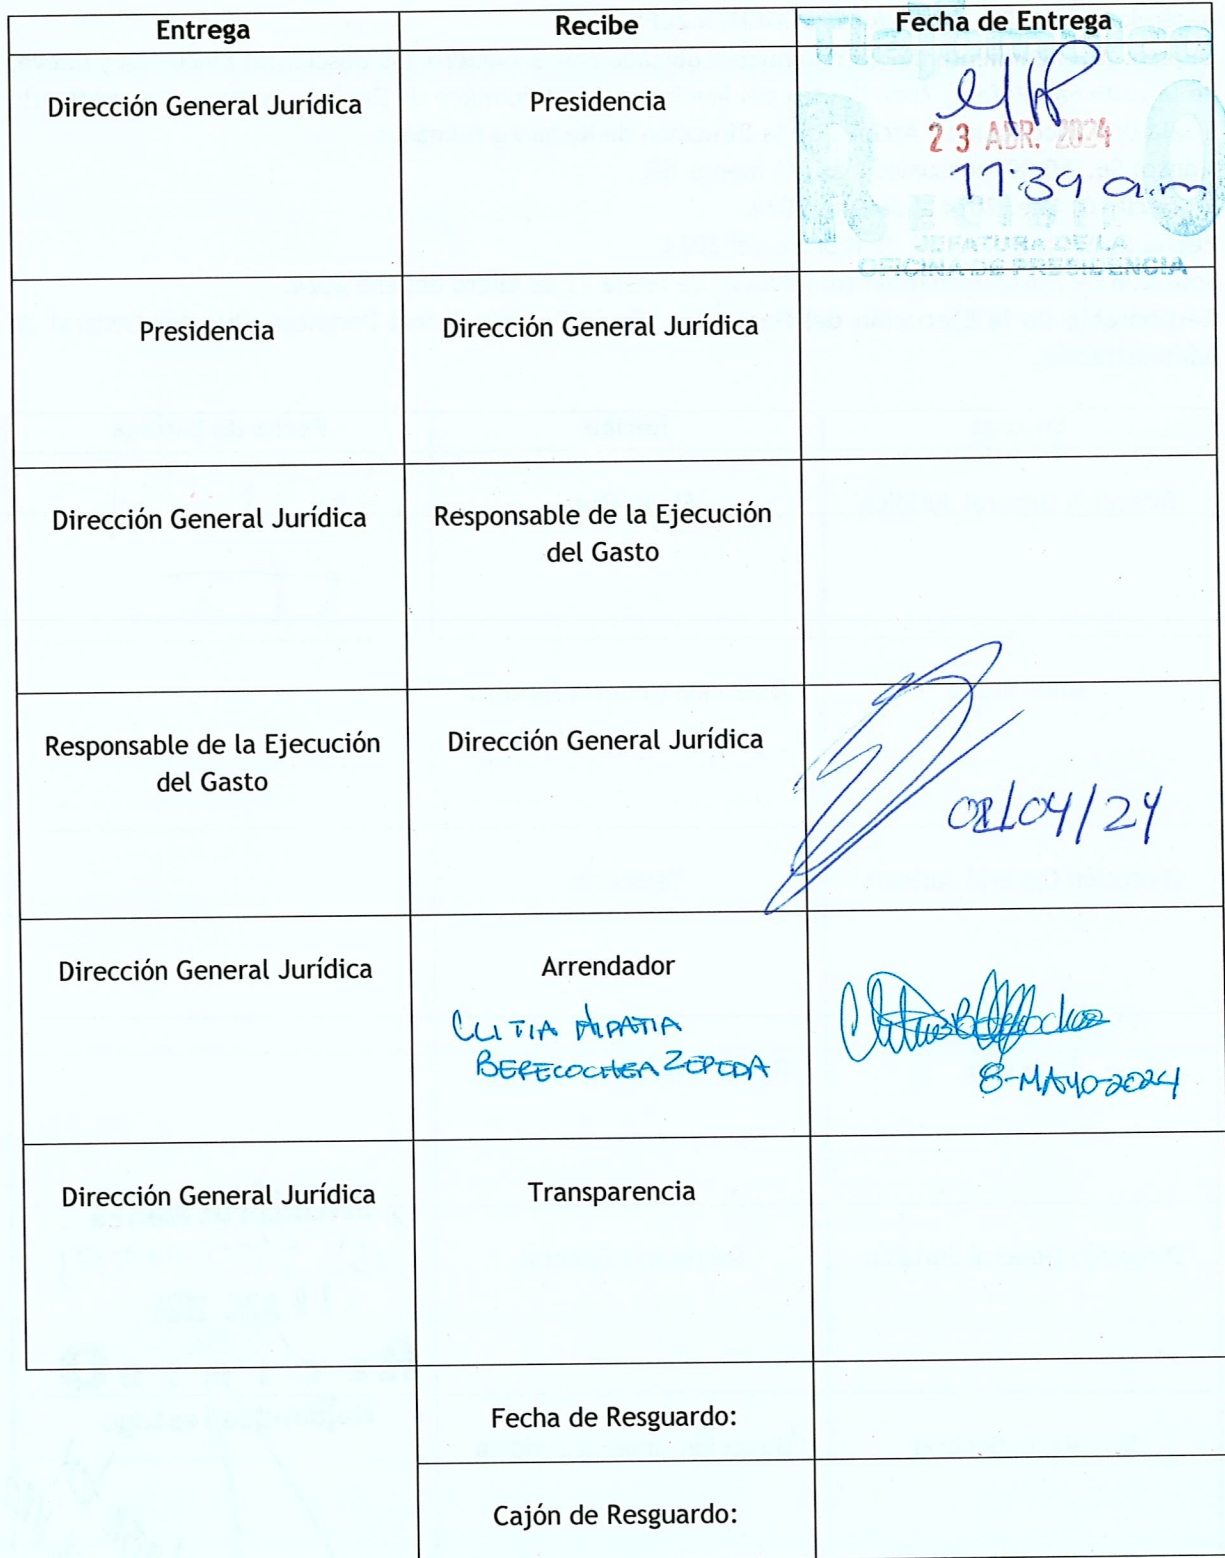 Entrega
Recibe
Fecha de Entrega
Dirección General Jurídica
Presidencia
Tlajomulco
23 ABR. 2024
11:39 a.m
Recibido
JEFATURA DE LA
OFICINA DE PRESIDENCIA
Presidencia
Dirección General Jurídica
Dirección General Jurídica
Responsable de la Ejecución
del Gasto
Responsable de la Ejecución
del Gasto
Dirección General Jurídica
/04/24
Dirección General Jurídica
Arrendador
CLITIA HIPATIA
BERECOCHEA ZEPEDA
8-MAYO-2024
Dirección General Jurídica
Transparencia
Fecha de Resguardo:
Cajón de Resguardo: